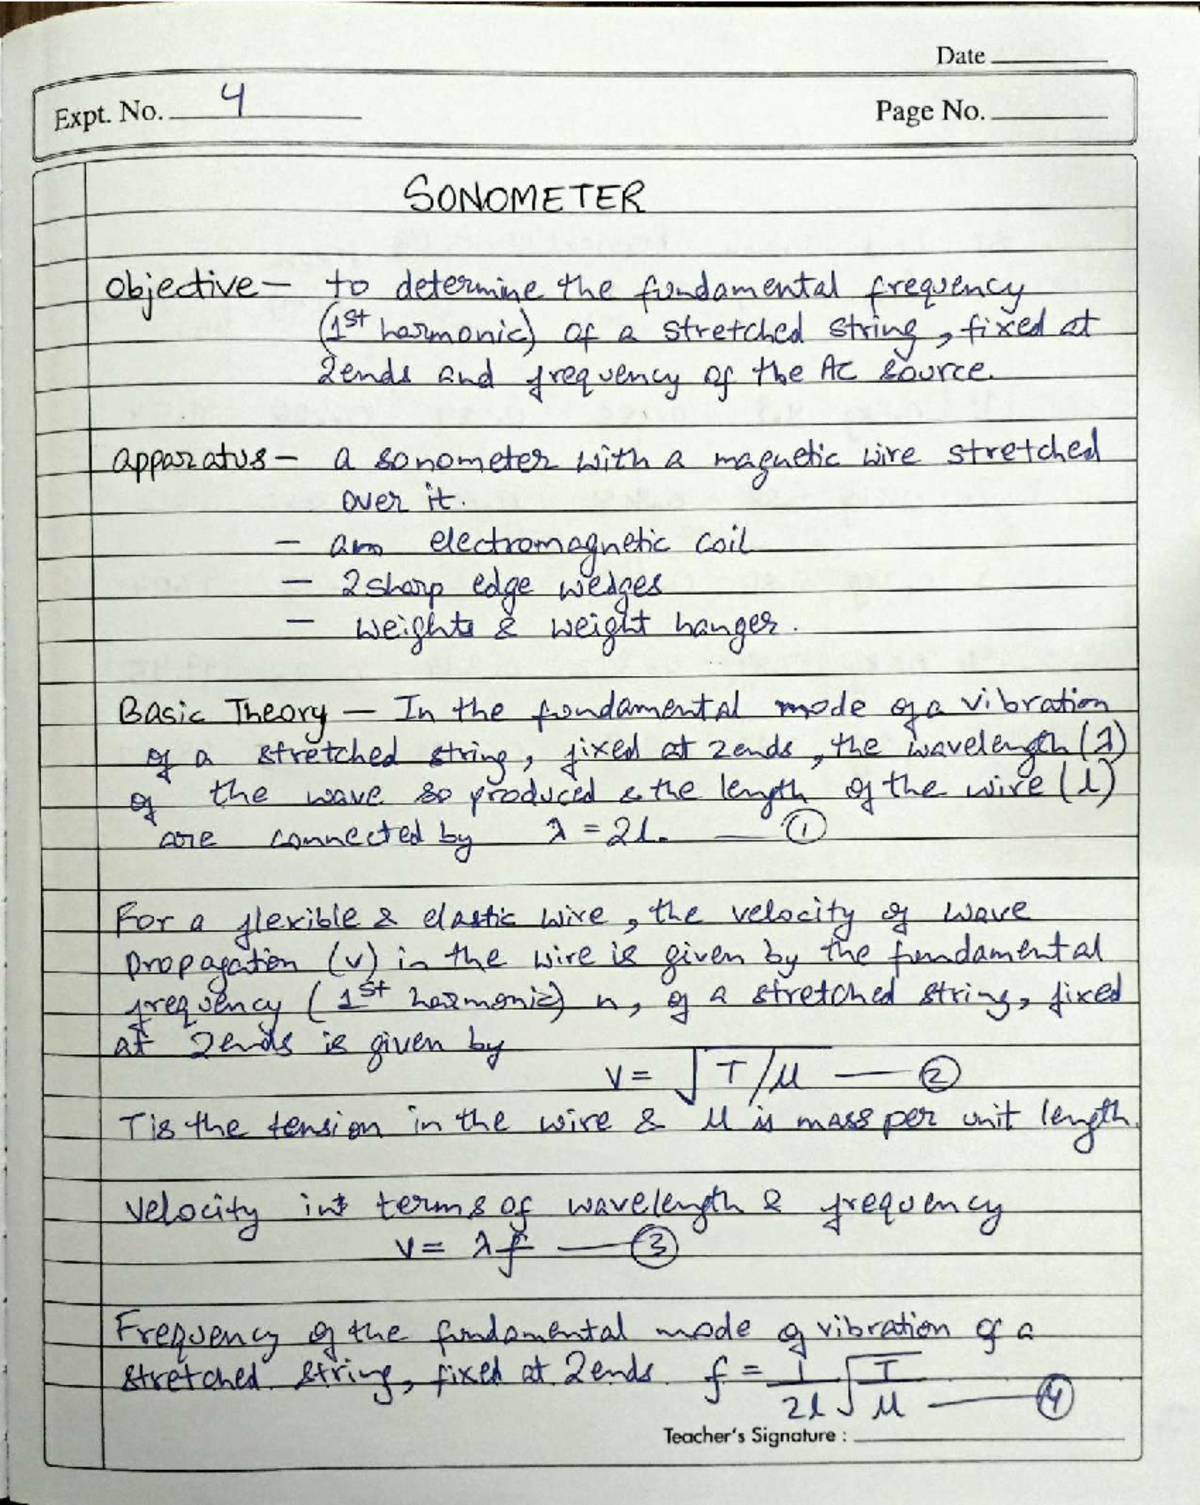 Date
Expt. No. 4
Page No.
SONOMETER
Objective - to determine the fundamental frequency
(1st harmonic) of a stretched string, fixed at
2 ends and frequency of the AC source.
apparatus - a sonometer with a magnetic wire stretched
over it.
- an electromagnetic coil
- 2 sharp edge wedges
- weights & weight hanger.
Basic Theory - In the fundamental mode of a vibration
of a stretched string, fixed at 2 ends, the wavelength (λ)
of the wave so produced & the length of the wire (l)
are connected by λ = 2l. — ①
For a flexible & elastic wire, the velocity of wave
propagation (v) in the wire is given by the fundamental
frequency (1st harmonic) n, of a stretched string, fixed
at 2 ends is given by
v = √T/μ — ②
T is the tension in the wire & μ is mass per unit length.
Velocity int terms of wavelength & frequency
v = λf — ③
Frequency of the fundamental mode of vibration of a
stretched string, fixed at 2 ends. f = 1/2l √T/μ — ④
Teacher's Signature :